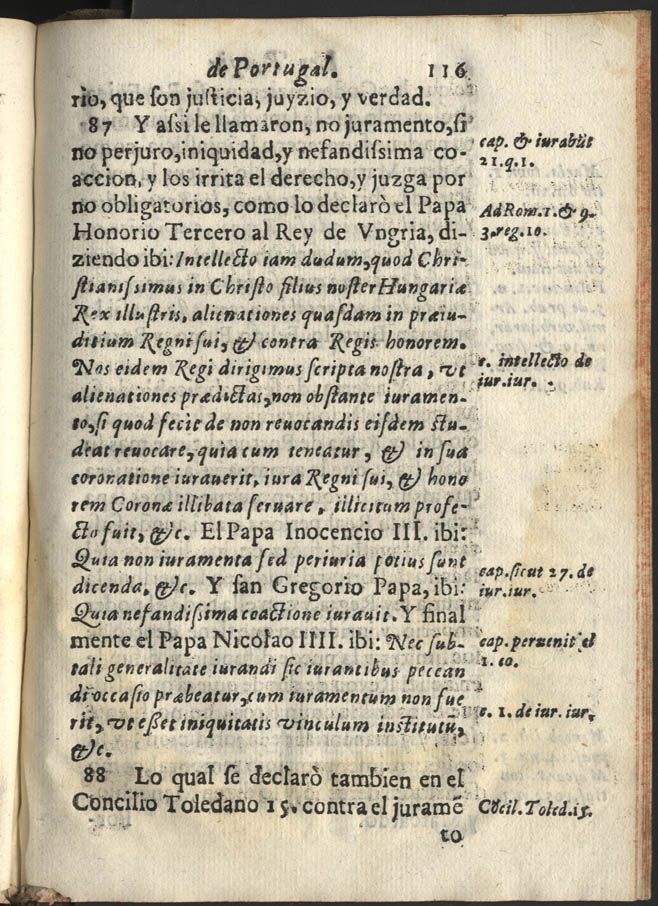 de Portugal. 116
rio, que son justicia, juyzio, y verdad.
87 Y assi le llamaron, no juramento, si
no perjuro, iniquidad, y nefandissima co-
accion, y los irrita el derecho, y juzga por
no obligatorios, como lo declarò el Papa
Honorio Tercero al Rey de Vngria, di-
ziendo ibi: Intellecto iam dudum, quod Chri-
stianissimus in Christo filius noster Hungariæ
Rex illustris, alienationes quasdam in præiu-
ditium Regni sui, & contra Regis honorem.
Nos eidem Regi dirigimus scripta nostra, vt
alienationes prædictas, non obstante iuramen-
to, si quod fecit de non reuocandis eisdem stu-
deat reuocare, quia cum teneatur, & in sua
coronatione iurauerit, iura Regni sui, & hono
rem Coronæ illibata seruare, illicitum profe-
cto fuit, &c. El Papa Inocencio III. ibi:
Quia non iuramenta sed periuria potius sunt
dicenda, &c. Y san Gregorio Papa, ibi:
Quia nefandissima coactione iurauit. Y final
mente el Papa Nicolao IIII. ibi: Nec sub-
tali generalitate iurandi sic iurantibus peccan
di occasio præbeatur, cum iuramentum non fue
rit, vt esset iniquitatis vinculum institutũ,
&c.
88 Lo qual se declarò tambien en el
Concilio Toledano 15. contra el juramẽ
to
cap. & iurabũt
21.q.1.
Ad Rom.1.& 9.
3.reg.10.
c. intellecto de
iur.iur.
cap.sicut 27. de
iur.iur.
cap. peruenit el
1. 60.
c. 1. de iur. iur.
Cõcil.Toled.15.